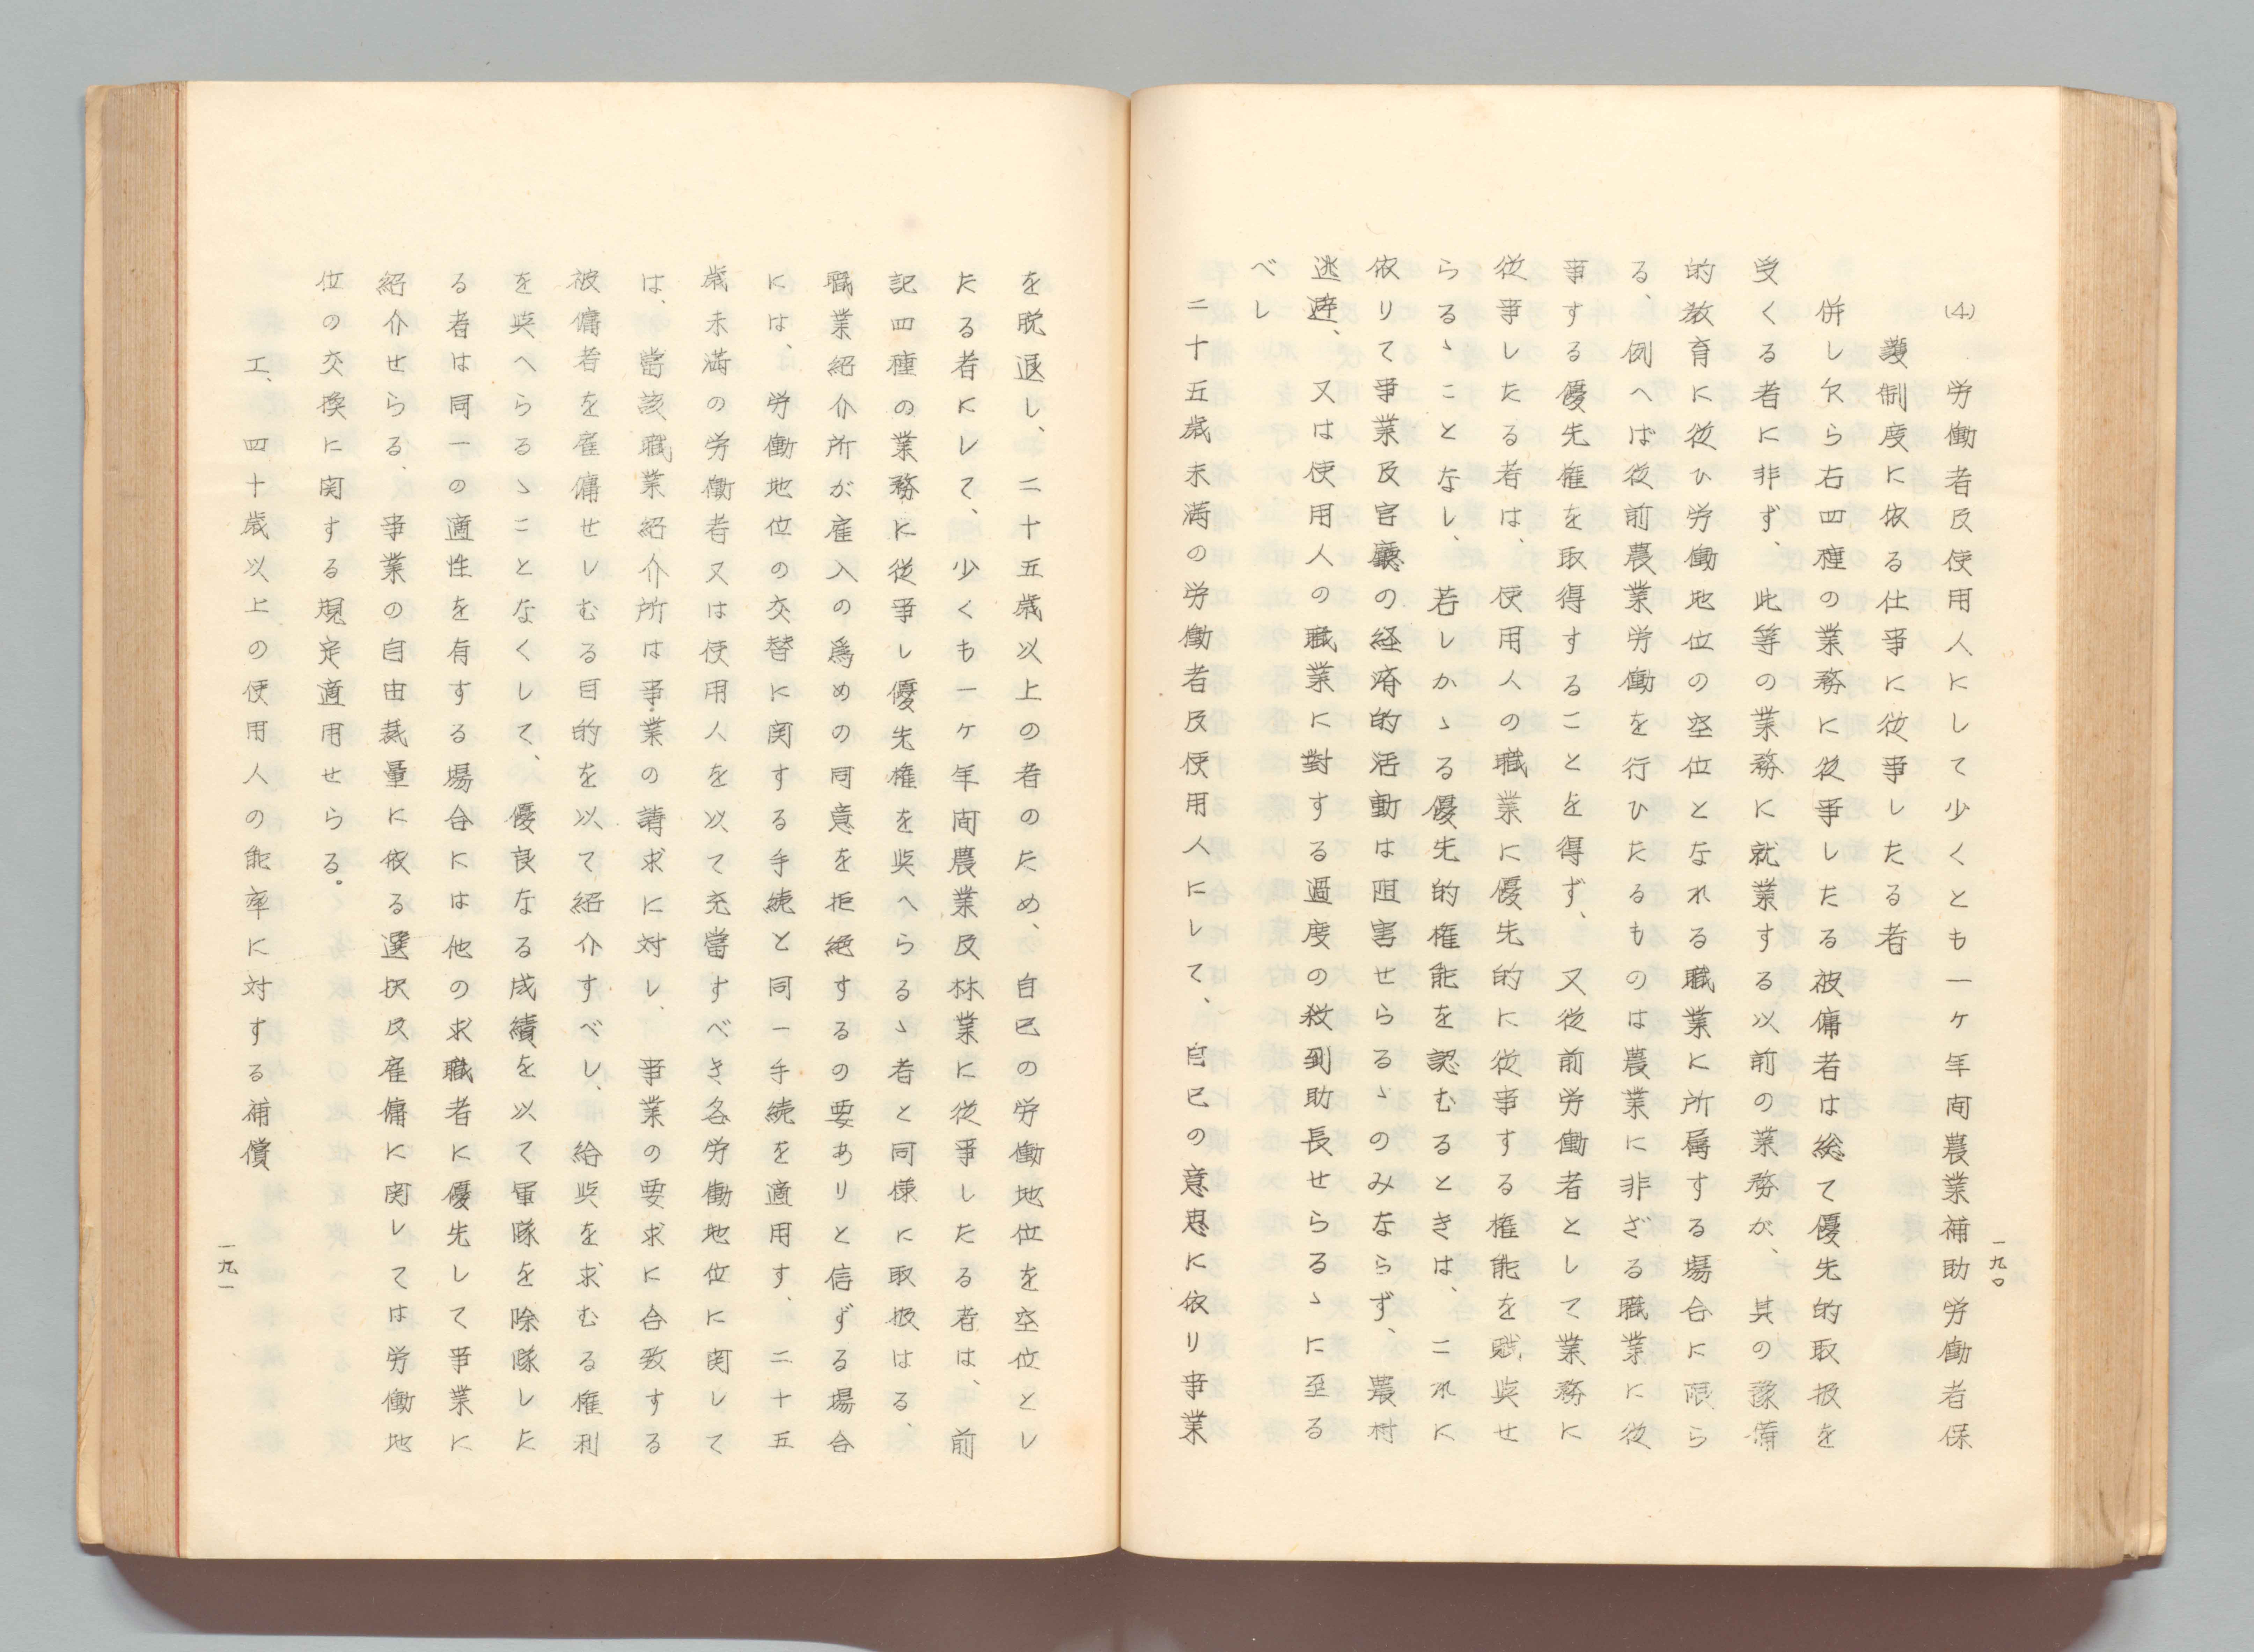 一九〇
(4) 労働者及使用人にして少くとも一ヶ年間農業補助労働者保
護制度に依る仕事に従事したる者
併し乍ら右四種の業務に従事したる被傭者は総て優先的取扱を
受くる者に非ず、此等の業務に就業する以前の業務が、其の豫備
的教育に従ひ労働地位の空位となれる職業に所属する場合に限ら
る、例へば従前農業労働を行ひたるものは農業に非ざる職業に従
事する優先権を取得することを得ず、又従前労働者として業務に
従事したる者は、使用人の職業に優先的に従事する権能を賦与せ
らるゝことなし、若しかゝる優先的権能を認むるときは、これに
依りて事業及官廳の経済的活動は阻害せらるゝのみならず、農村
逃避、又は使用人の職業に對する過度の殺到助長せらるゝに至る
べし
二十五歳未満の労働者及使用人にして、自己の意思に依り事業
を脱退し、二十五歳以上の者のため、自己の労働地位を空位とし
たる者にして、少くも一ヶ年間農業及林業に従事したる者は、前
記四種の業務に従事し優先権を与へらるゝ者と同様に取扱はる、
職業紹介所が雇入の為めの同意を拒絶するの要ありと信ずる場合
には、労働地位の交替に関する手続と同一手続を適用す、二十五
歳未満の労働者又は使用人を以て充當すべき各労働地位に関して
は、當該職業紹介所は事業の請求に対し、事業の要求に合致する
被傭者を雇傭せしむる目的を以て紹介すべし、給与を求むる権利
を与へらるゝことなくして、優良なる成績を以て軍隊を除隊した
る者は同一の適性を有する場合には他の求職者に優先して事業に
紹介せらる、事業の自由裁量に依る選択及雇傭に関しては労働地
位の交換に関する規定適用せらる。
工、四十歳以上の使用人の能率に対する補償
一九一